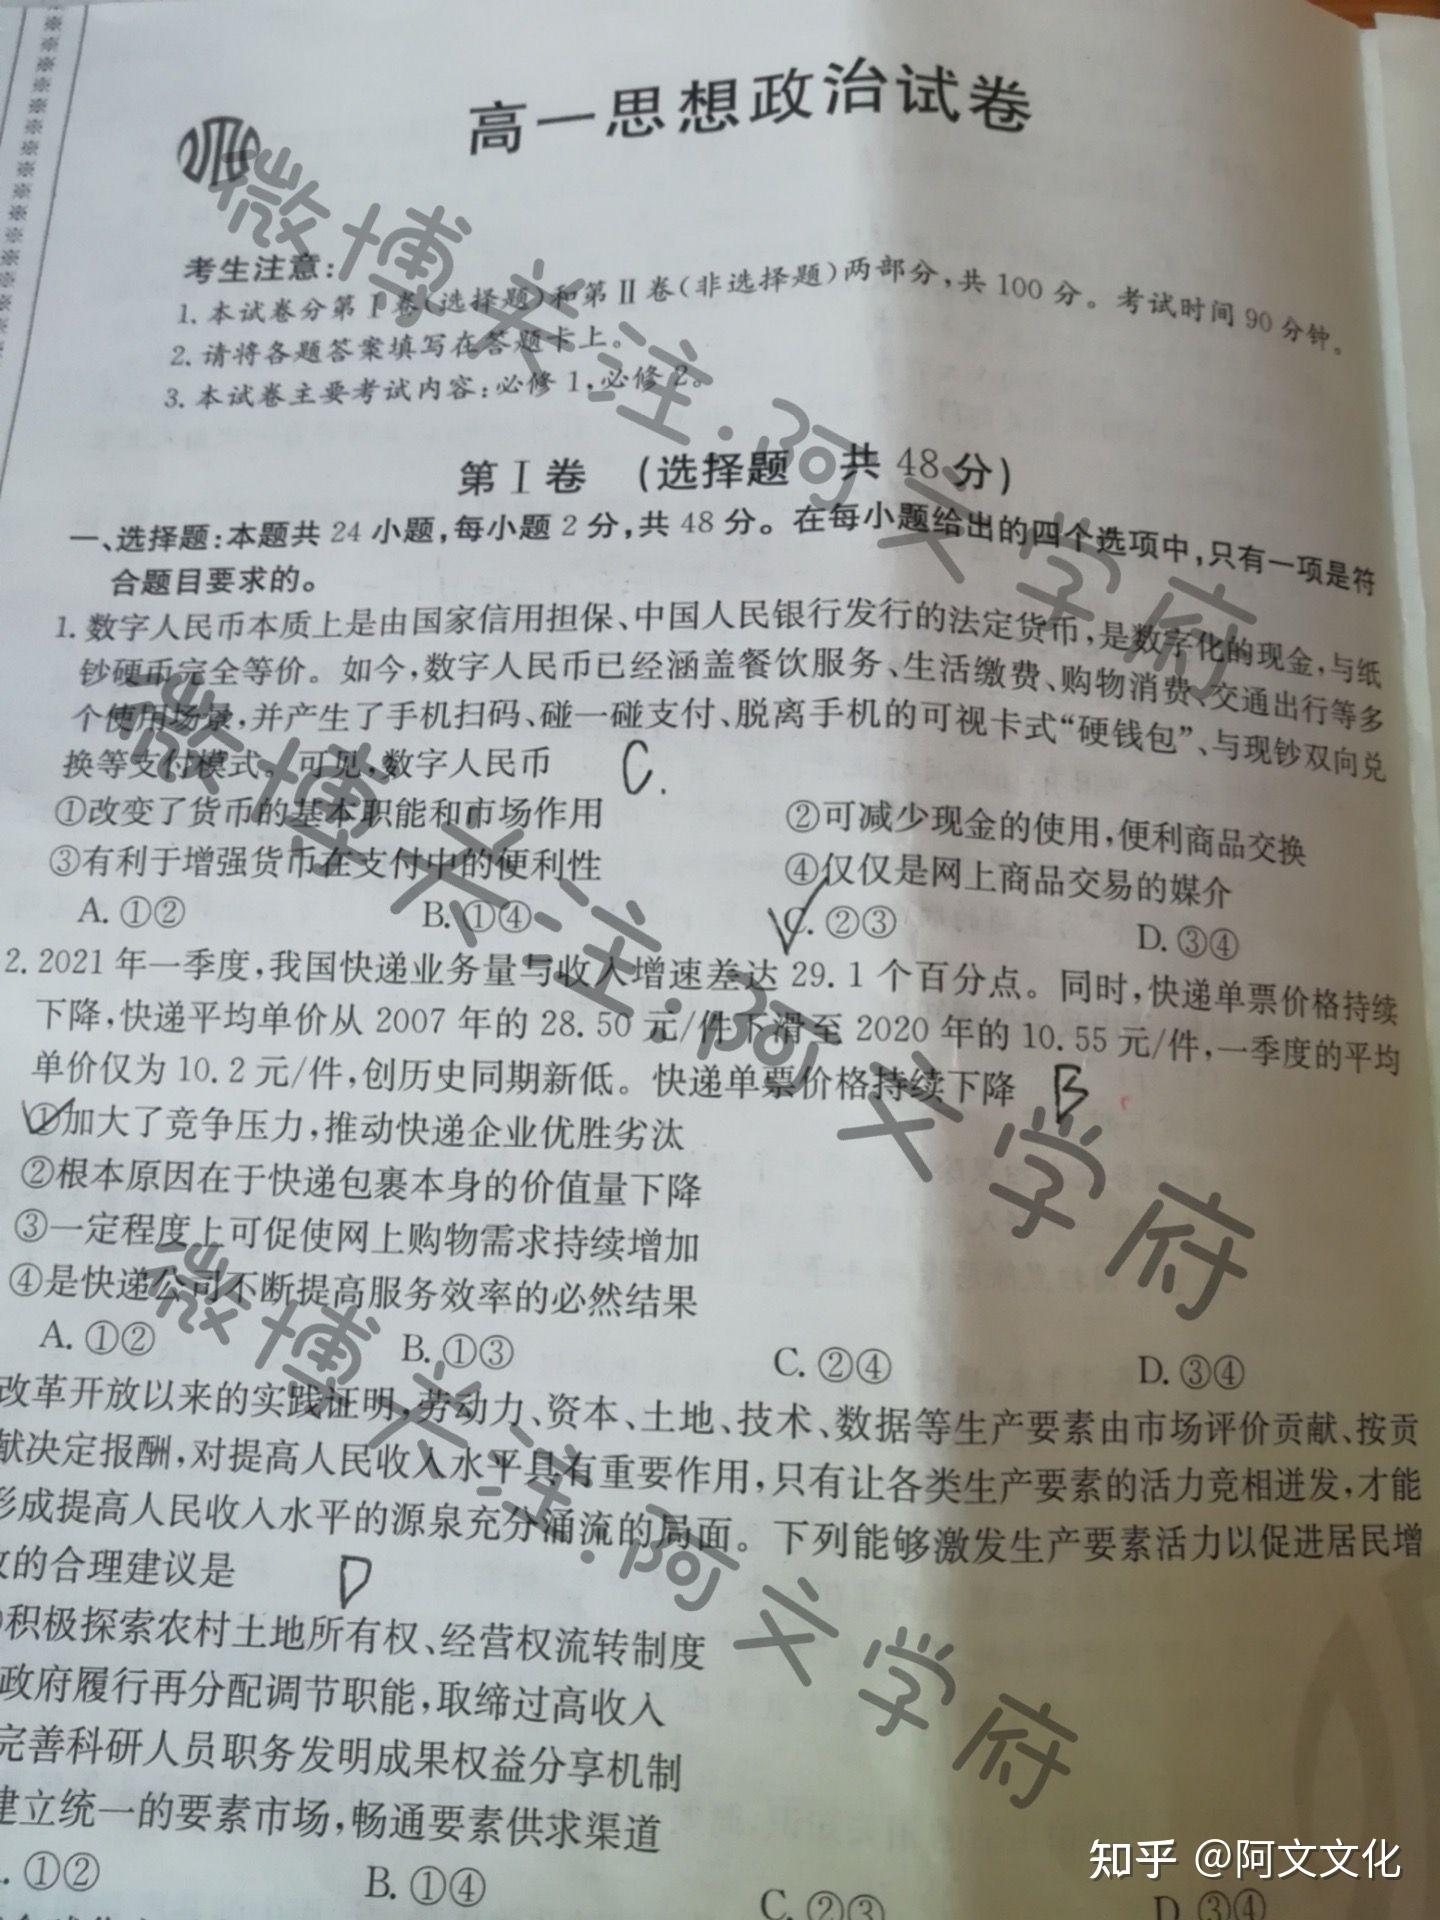 高一思想政治试卷
考生注意:
1. 本试卷分第Ⅰ卷(选择题)和第Ⅱ卷(非选择题)两部分,共100分。考试时间90分钟。
2. 请将各题答案填写在答题卡上。
3. 本试卷主要考试内容:必修1,必修2。
第Ⅰ卷 (选择题 共48分)
一、选择题:本题共24小题,每小题2分,共48分。在每小题给出的四个选项中,只有一项是符
合题目要求的。
1. 数字人民币本质上是由国家信用担保、中国人民银行发行的法定货币,是数字化的现金,与纸
钞硬币完全等价。如今,数字人民币已经涵盖餐饮服务、生活缴费、购物消费、交通出行等多
个使用场景,并产生了手机扫码、碰一碰支付、脱离手机的可视卡式“硬钱包”、与现钞双向兑
换等支付模式。可见,数字人民币 C.
①改变了货币的基本职能和市场作用 ②可减少现金的使用,便利商品交换
③有利于增强货币在支付中的便利性 ④仅仅是网上商品交易的媒介
A. ①② B. ①④ C. ②③ D. ③④
2. 2021年一季度,我国快递业务量与收入增速差达29.1个百分点。同时,快递单票价格持续
下降,快递平均单价从2007年的28.50元/件下滑至2020年的10.55元/件,一季度的平均
单价仅为10.2元/件,创历史同期新低。快递单票价格持续下降 B
①加大了竞争压力,推动快递企业优胜劣汰
②根本原因在于快递包裹本身的价值量下降
③一定程度上可促使网上购物需求持续增加
④是快递公司不断提高服务效率的必然结果
A. ①② B. ①③ C. ②④ D. ③④
改革开放以来的实践证明,劳动力、资本、土地、技术、数据等生产要素由市场评价贡献、按贡
献决定报酬,对提高人民收入水平具有重要作用,只有让各类生产要素的活力竞相迸发,才能
形成提高人民收入水平的源泉充分涌流的局面。下列能够激发生产要素活力以促进居民增
收的合理建议是 D
积极探索农村土地所有权、经营权流转制度
政府履行再分配调节职能,取缔过高收入
完善科研人员职务发明成果权益分享机制
建立统一的要素市场,畅通要素供求渠道
①② B. ①④ C. ②③ D. ③④
微博关注:阿文学府
微博关注:阿文学府
微博关注:阿文学府
知乎 @阿文文化